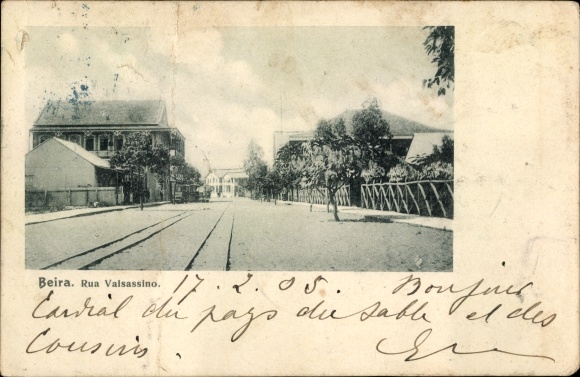 Beira. Rua Valsassino. 17.2.05. Bonjour
Cordial du pays du sable et des
Cousins.